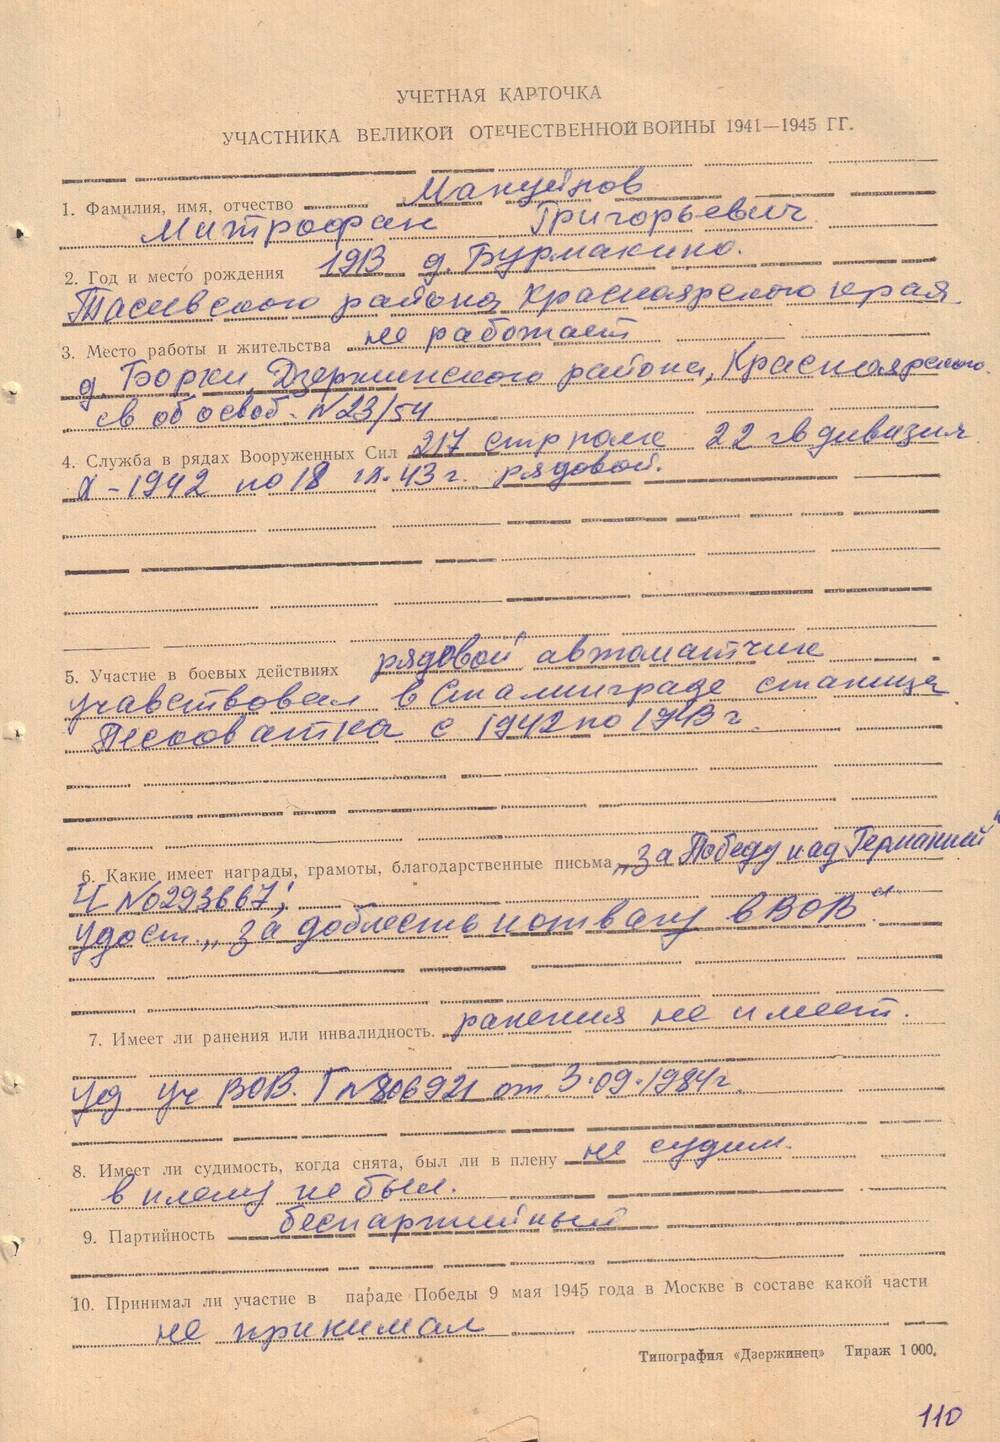 УЧЕТНАЯ КАРТОЧКА
УЧАСТНИКА ВЕЛИКОЙ ОТЕЧЕСТВЕННОЙ ВОЙНЫ 1941—1945 ГГ.
1. Фамилия, имя, отчество Мануйлов
Митрофан Григорьевич
2. Год и место рождения 1913 д. Бурмакино.
Тасеевского района Красноярского края
3. Место работы и жительства не работает
д. Борки, Дзержинского района, Красноярского
св об освоб. N23/54
4. Служба в рядах Вооруженных Сил 217 стр полк 22 гв дивизия
X-1942 по 18 43 г. рядовой.
5. Участие в боевых действиях рядовой автоматчик
учавствовал в Сталинграде станица
Песковатка с 1942 по 1943 г.
6. Какие имеет награды, грамоты, благодарственные письма „за Победу над Германией"
Ц N0293667;
удост. „за доблесть и отвагу в ВОВ"
7. Имеет ли ранения или инвалидность. ранения не имеет.
уд уч ВОВ. Г N806921 от 3.09.1984г.
8. Имеет ли судимость, когда снята, был ли в плену не судим.
в плену не был.
9. Партийность беспартийный
10. Принимал ли участие в параде Победы 9 мая 1945 года в Москве в составе какой части
не принимал
Типография «Дзержинец» Тираж 1 000.
110